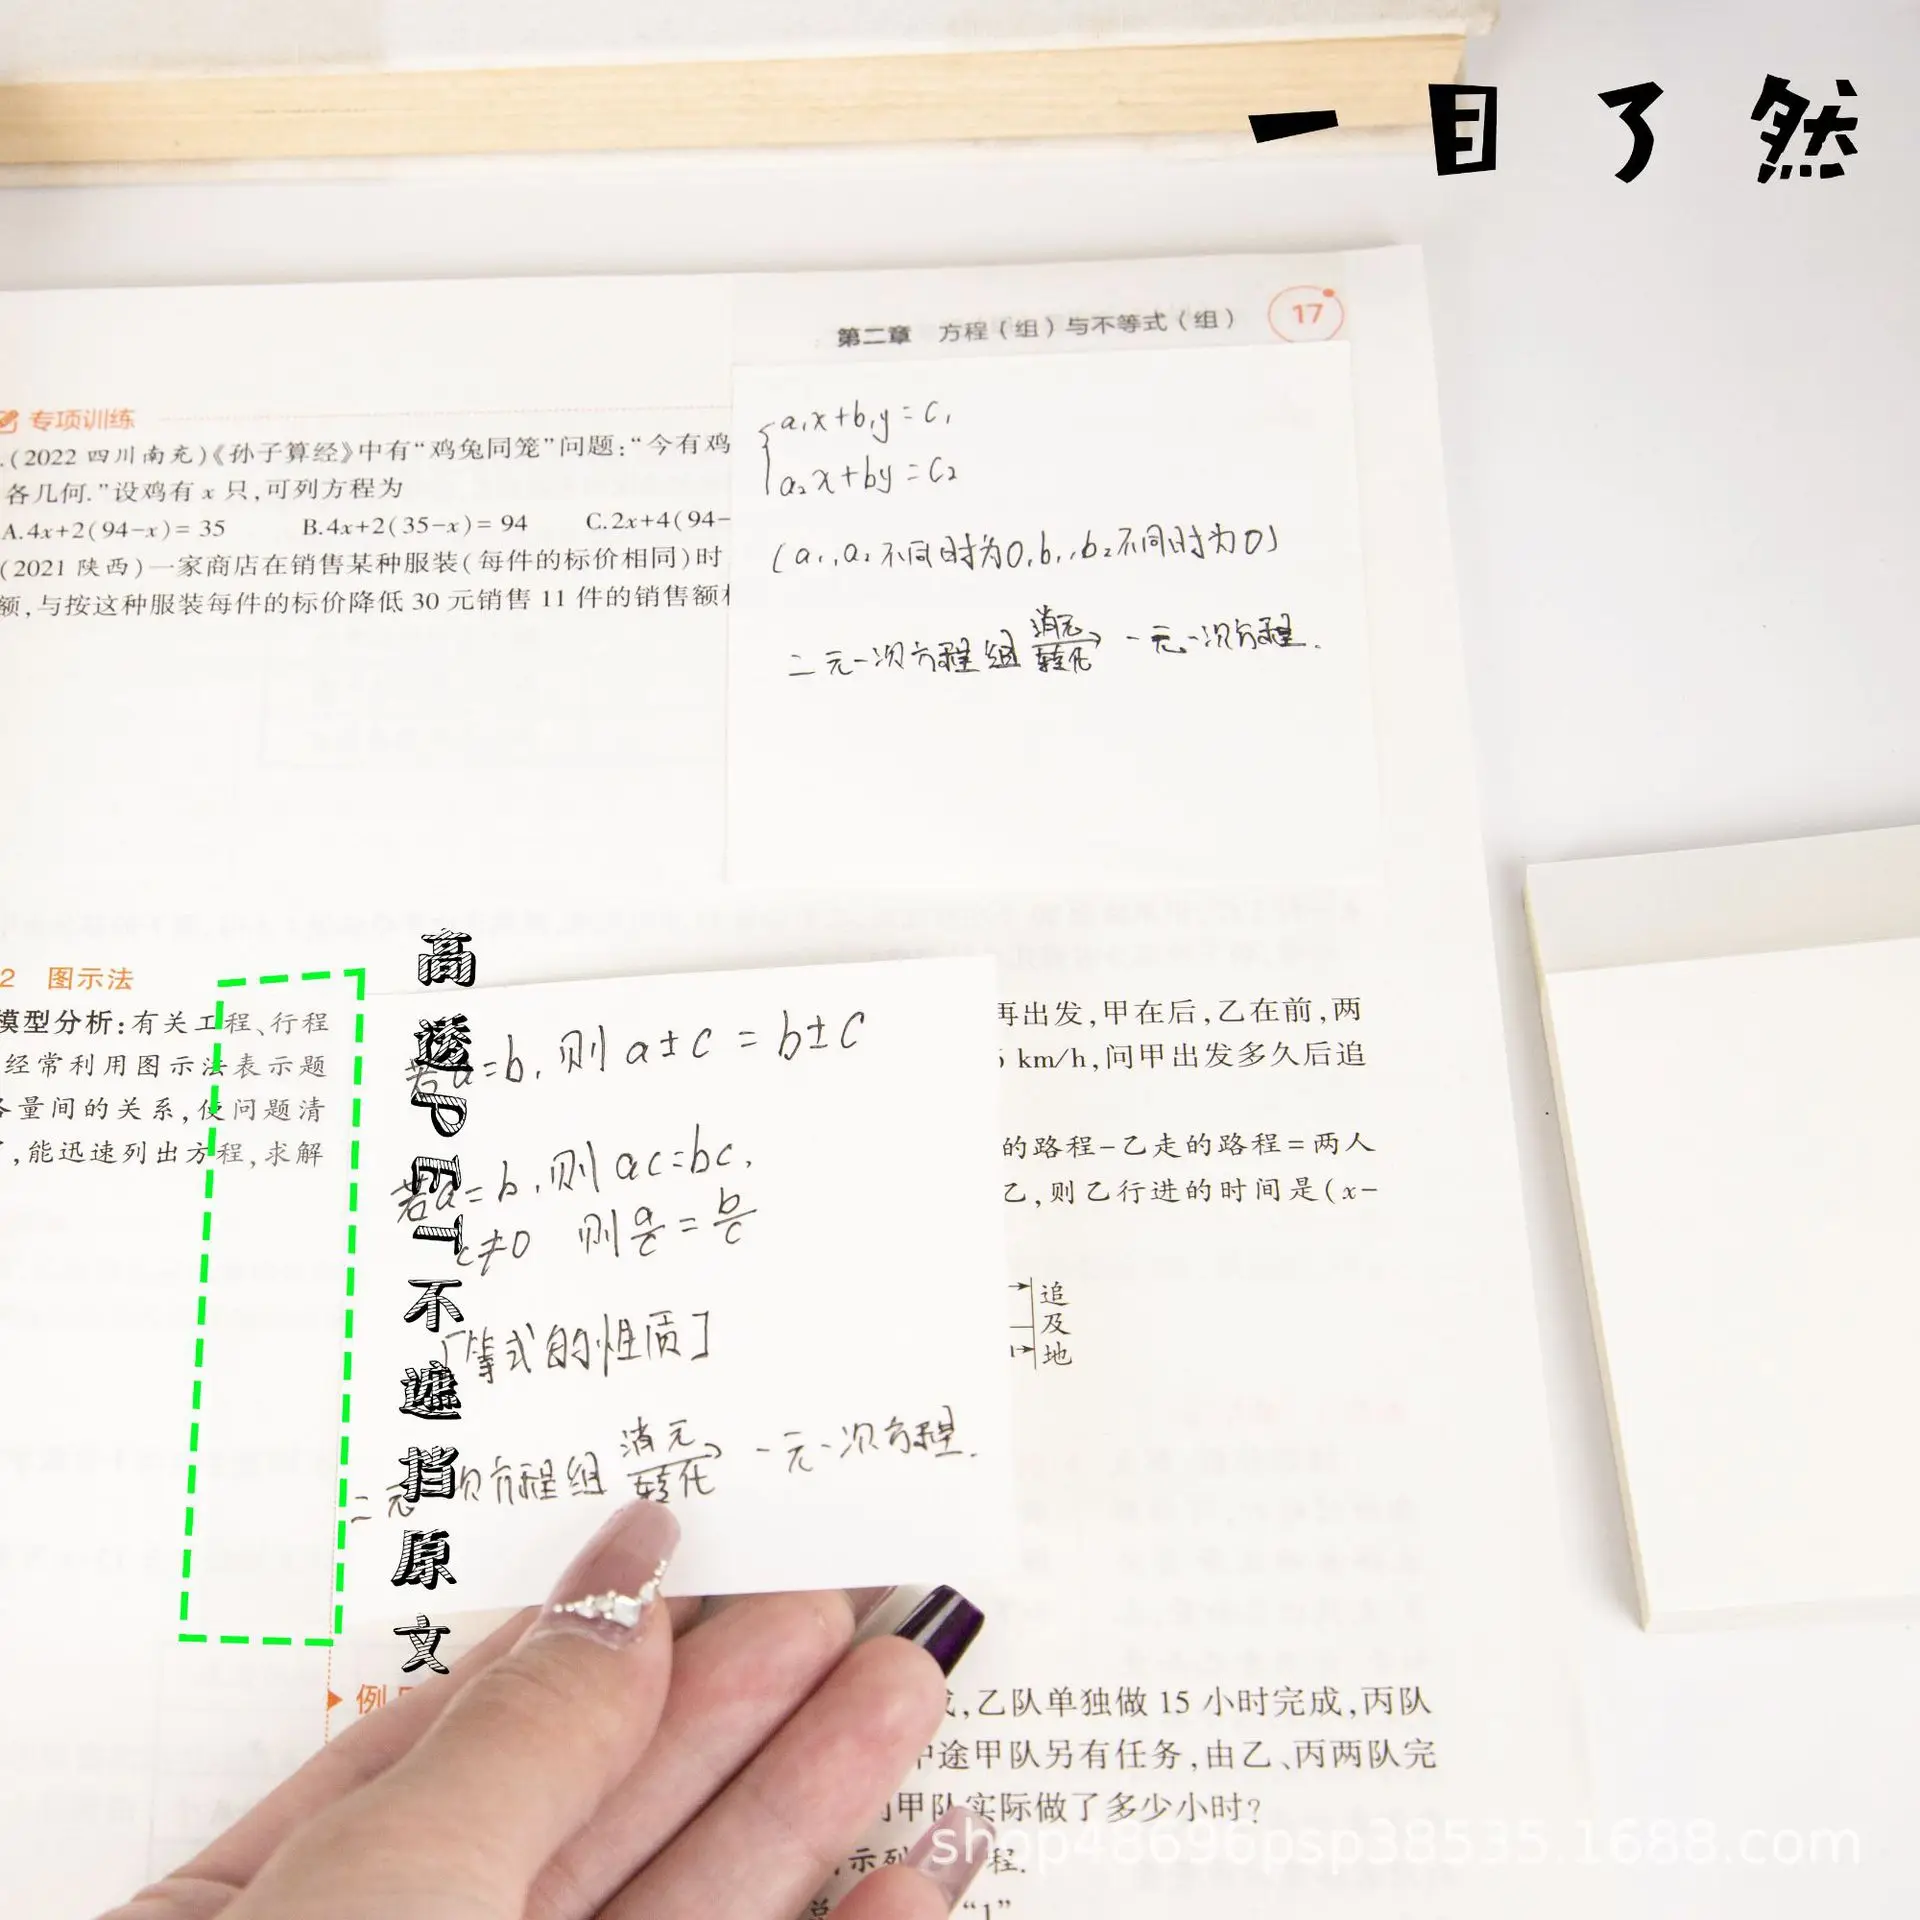 一目了然
第二章 方程(组)与不等式(组) 17
专项训练
.(2022 四川南充)《孙子算经》中有“鸡兔同笼”问题:“今有鸡
各几何.”设鸡有 x 只,可列方程为
A.4x+2(94-x)= 35 B.4x+2(35-x)= 94 C.2x+4(94-
(2021 陕西)一家商店在销售某种服装(每件的标价相同)时
额,与按这种服装每件的标价降低 30 元销售 11 件的销售额
a₁x+b₁y=c₁
a₂x+by=c₂
(a₁,a₂不同时为0,b₁,b₂不同时为0)
二元一次方程组 消元 转化 一元一次方程.
2 图示法
模型分析:有关工程、行程
经常利用图示法表示题
各量间的关系,使问题清
,能迅速列出方程,求解
高透PET不遮挡原文
若a=b,则a±c=b±c
若a=b,则ac=bc,
c≠0 则a/c=b/c
「等式的性质]
二元 次方程组 消元 转化 一元一次方程.
再出发,甲在后,乙在前,两
km/h,问甲出发多久后追
的路程-乙走的路程=两人
乙,则乙行进的时间是(x-
追
及
地
例
,乙队单独做 15 小时完成,丙队
中途甲队另有任务,由乙、丙两队完
甲队实际做了多少小时?
示列 程.
“1”
shop48696psp38535.1688.com